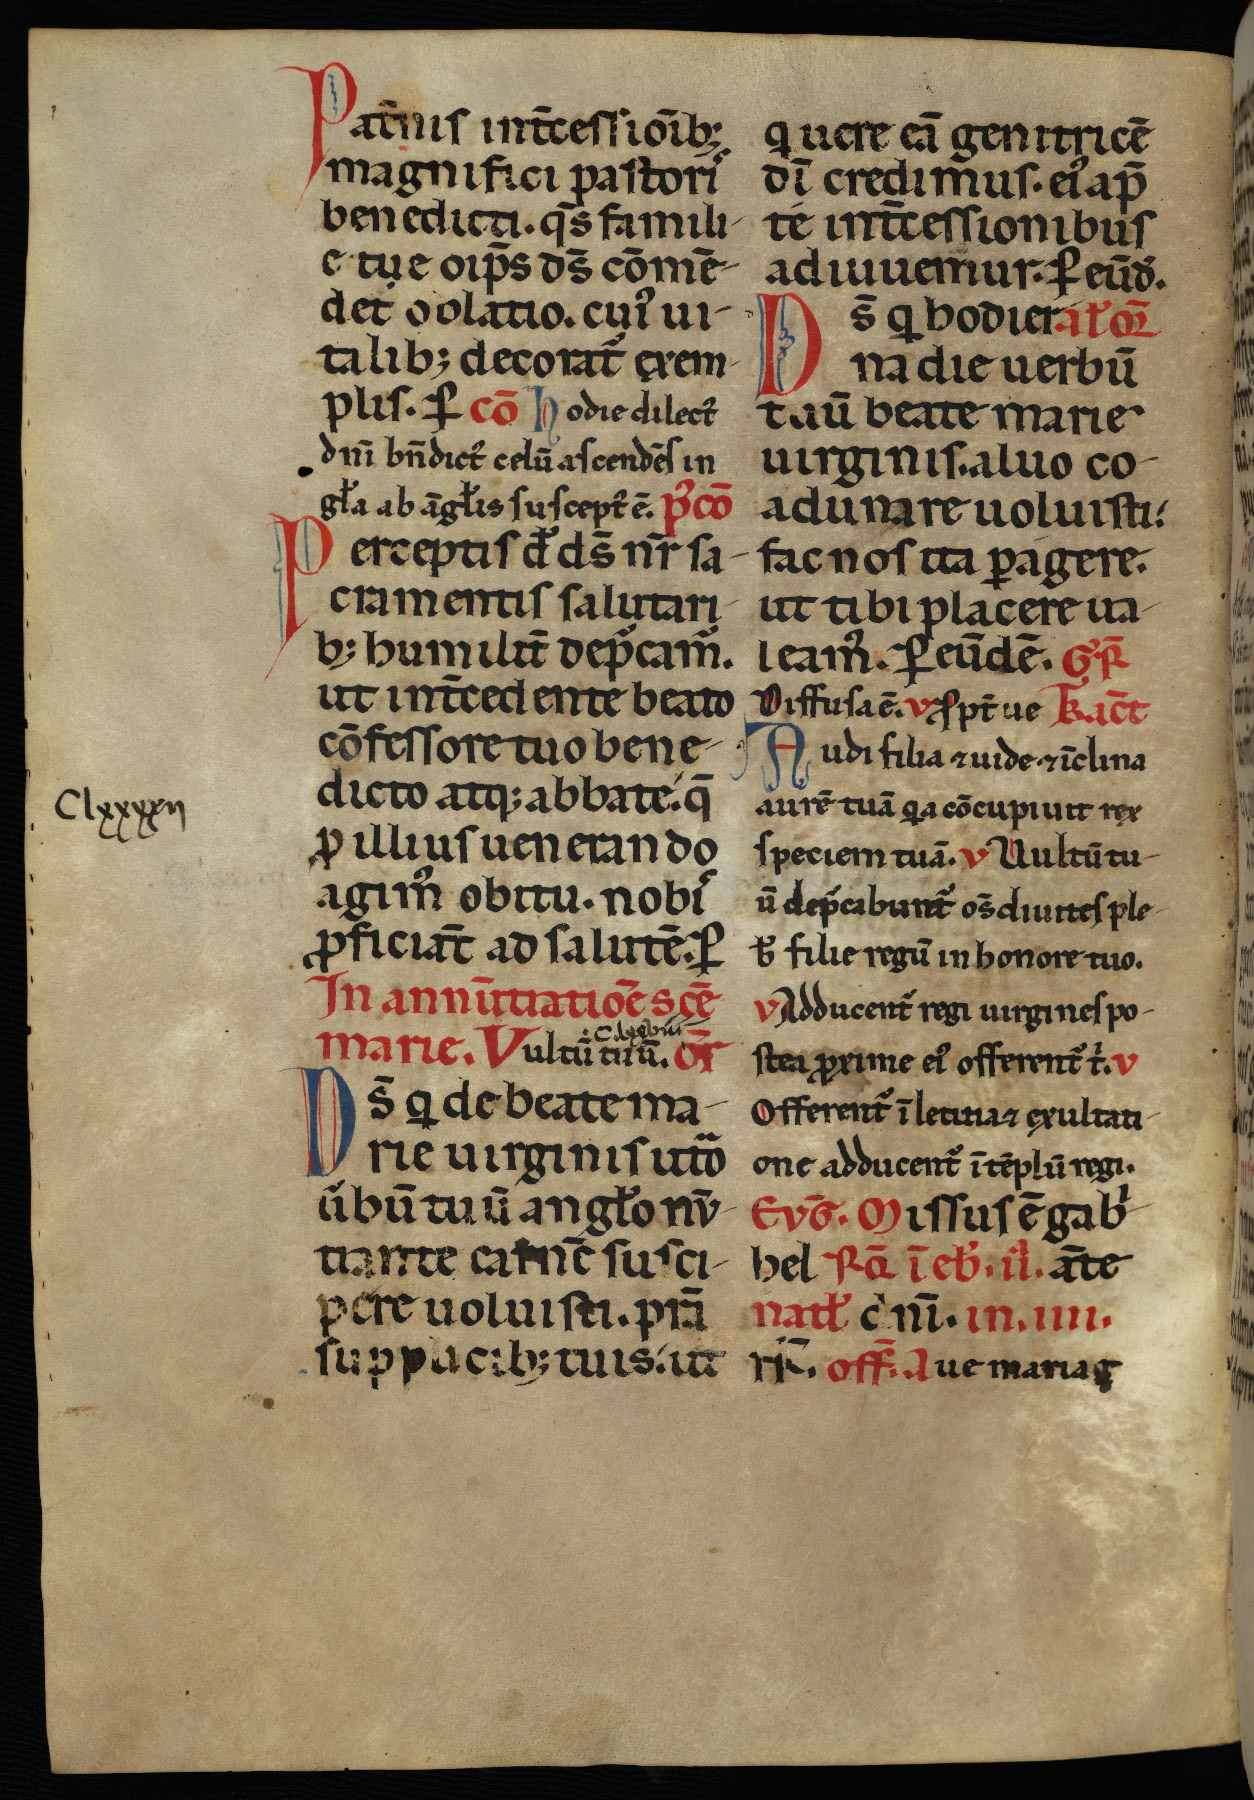 Pat̄nis int̄cessioīb;
magnifici pastorꝰ
benedicti. qs̄ famili-
e tue oip̄s ds̄ cōmē-
det oblatio. cuiꝰ ui-
talib; decorat᷑ exem-
plis. ꝑ cō hodie dilectꝰ
dnī bn̄dictꝰ celū ascendēs in
gl̄a ab āgl̄is susceptꝰ ē. pꝰcō
Perceptis d̄ ds̄ nr̄ sa-
cramentis salutari-
b; humilit̄ dep̄camꝰ.
ut int̄cedente beato
cōfessore tuo bene-
dicto atq; abbate. q̄
ꝓ illius uenerando
agimꝰ obitu. nobꝭ
ꝓficiat̄ ad salutē. ꝑ
In annūtiatiōe scē
marie. Vultū tuū. or̄
Ds̄ qui de beate ma-
rie uirginis ut̾o
ūbū tuū angl̄o nū-
tiante carnē susci-
pere uoluisti. pr̄a
supplicib; tuis. ut
Clxxxxii
qui uere eā genitricē
dī credimus. eiꝰ ap̄
te int̄cessionibus
adiuuemur. ꝑ eūd̄.
Ds̄ qui hodier al̄ or̄
na die uerbū
tuū beate marie
uirginis. aluo co-
adunare uoluisti.
fac nos ita ꝑagere.
ut tibi placere ua-
leamꝰ. ꝑ eūdē. Gr̄
Diffusa ē. v ꝓpt̄ ue Tract̄
Audi filia ⁊ uide. ⁊ īclina
aurē tuā quia cōcupiuit rex
speciem tuā. v Uultū tu-
ū dep̄cabunt᷑ os̄ diuites ple-
b̄ filie regū in honore tuo.
v Adducent᷑ regi uirgines po-
stea ꝓxime eiꝰ offerent᷑ t᷑. v
Offerent᷑ ī letitia ⁊ exultati-
one adducent᷑ ī tēplū regi.
Evḡ. Missus ē gab̄-
hel Rq̄ ī eb̄. ii. āte
natl̄ dnī. in. iiii.
off̄. Aue maria g